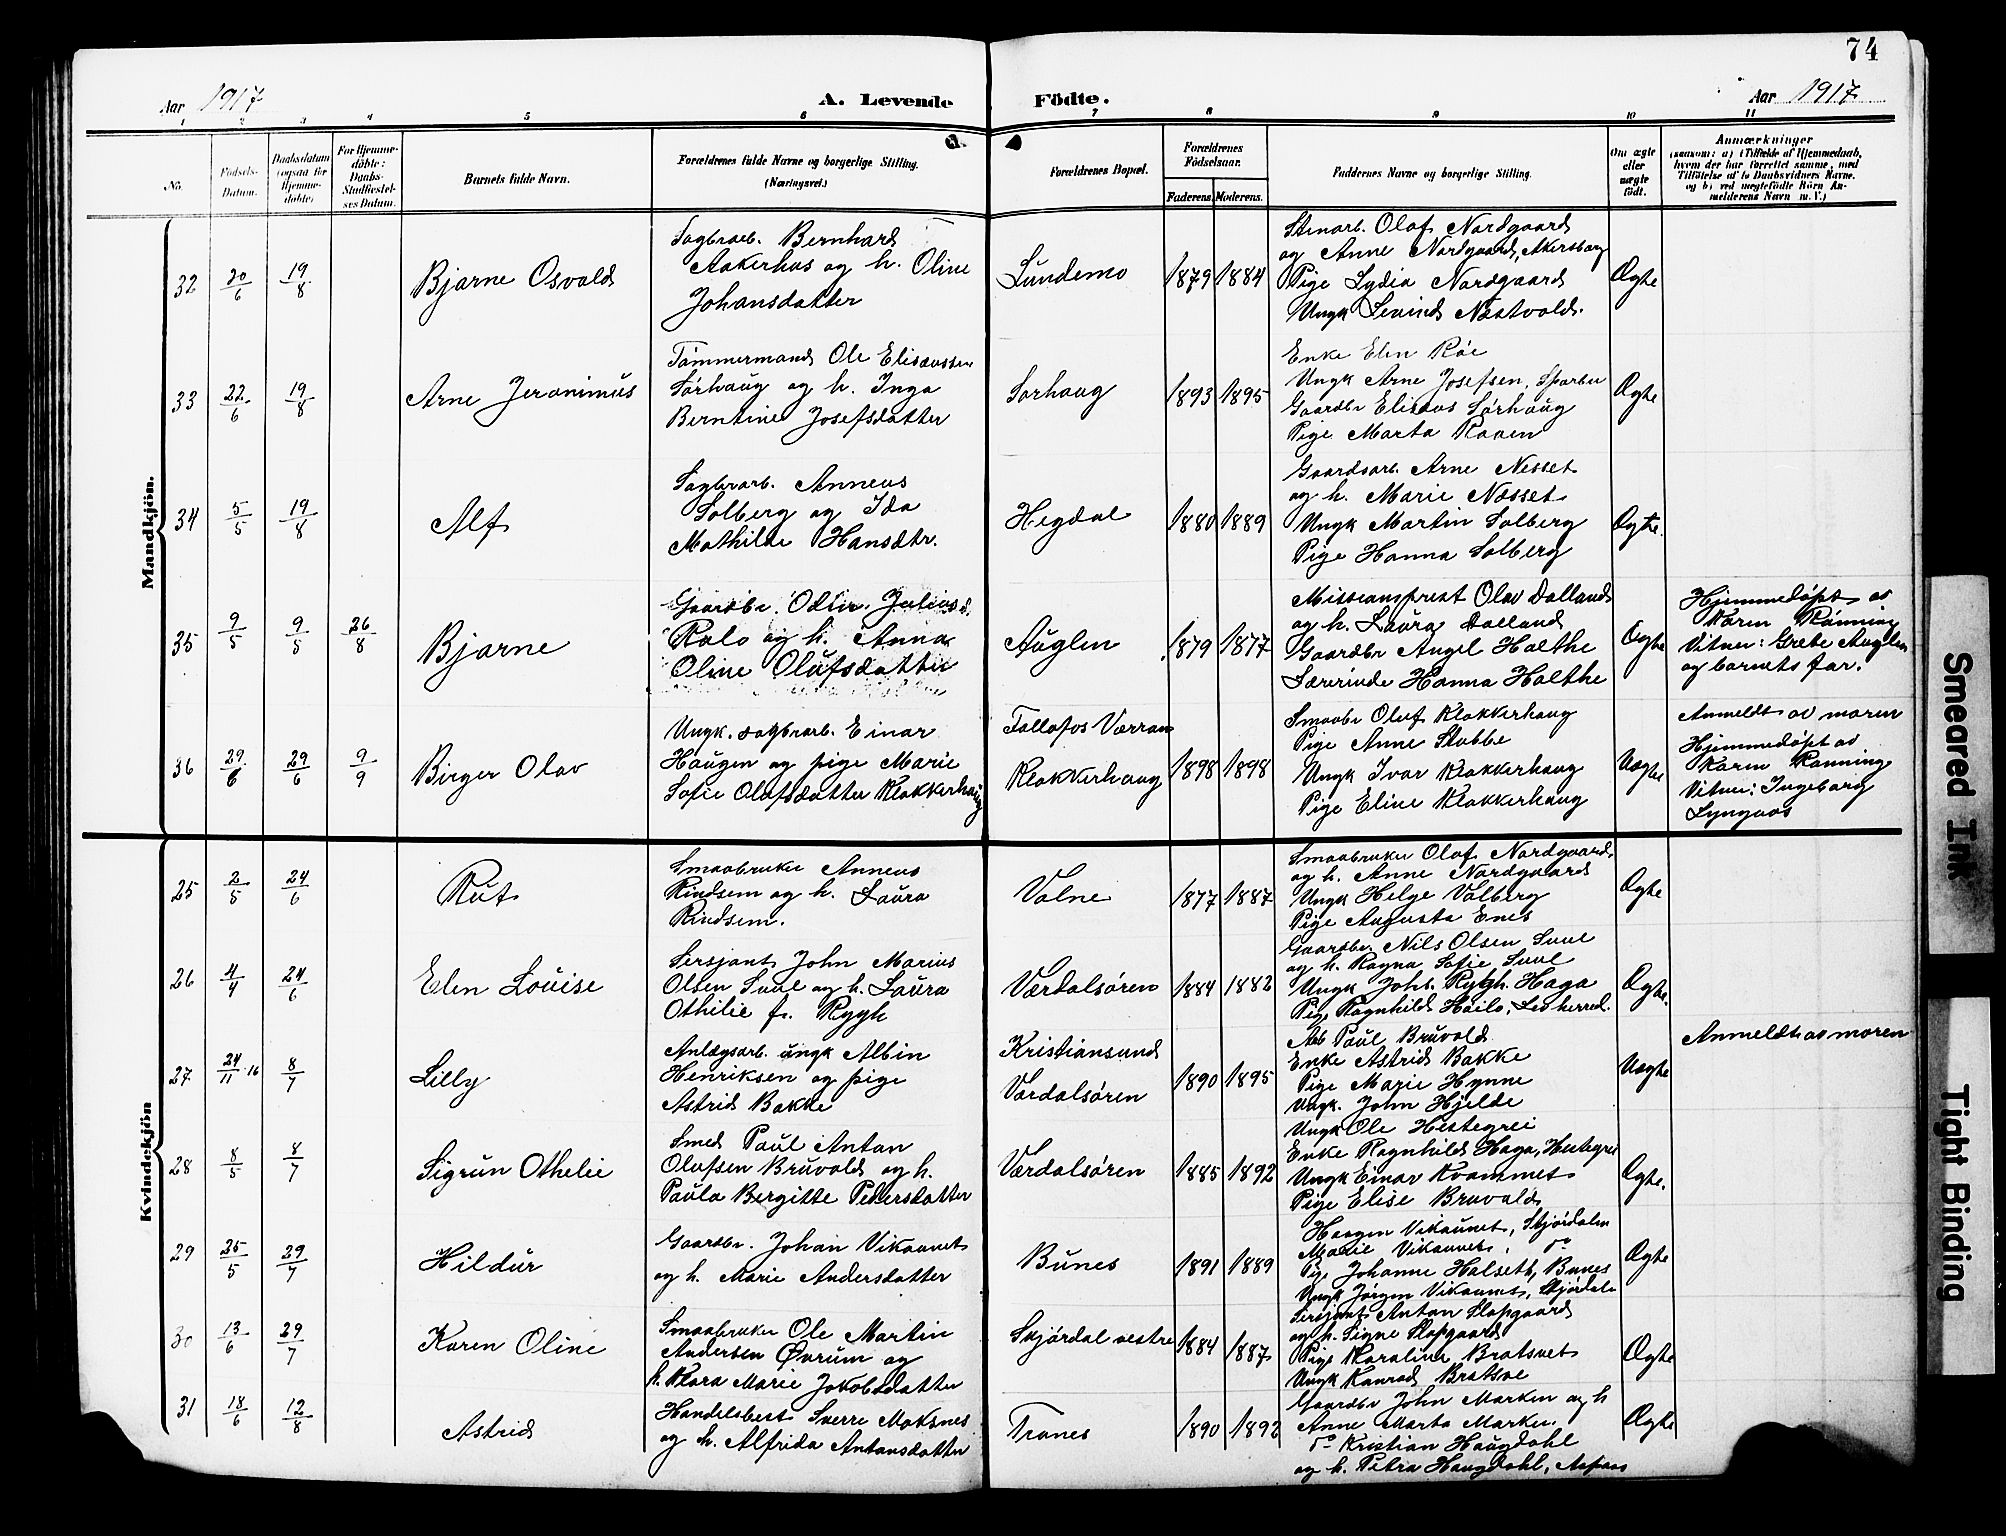 74
Aar 1917
A. Levende Födte.
Aar 1917
1 2 3 4 5 6 7 8 9 10 11
No.
Födsels-Datum.
Daabsdatum (ogsaa for Hjemmedöbte)
For Hjemmedöbte: Daabs-Stadfæstelses Datum.
Barnets fulde Navn.
Forældrenes fulde Navne og borgerlige Stilling. (Næringsvei.)
Forældrenes Bopæl.
Forældrenes Födselsaar.
Faderens. Moderens.
Faddernes Navne og borgerlige Stilling.
Om ægte eller uægte födt.
Anmærkninger
(saasom: a) i Tilfælde af Hjemmedaab, hvem der har forrettet samme, med Tilföielse af to Daabsvidners Navne. og b) ved uægtefödte Börn Anmelderens Navn m. V.)
Mandkjön.
32 20/6 19/8
Bjarne Osvald
Sagbrarb. Bernhard
Aakerhus og h. Oline
Johansdatter
Lundemo
1879 1884
Stenarb. Olaf Nordgaard
og Anne Nordgaard, Akersborg
Pige Lydia Nordgaard
Ungk Levind Næstvold.
Ægte
33 22/6 19/8
Arne Jeronimus
Tømmermand Ole Eliseussen
Sørhaug og h. Inga
Berntine Josefsdatter
Sørhaug
1893 1895
Enke Elen Røe
Ungk Arne Josefsen, Sparbu
Gaardbr Eliseus Sørhaug
Pige Marta Raaen
Ægte
34 5/5 19/8
Alf
Sagbrarb. Anneus
Solberg og Ida
Mathilde Hansdtr.
Hegdal
1880 1889
Gaardsarb. Arne Nesset
og h. Marie Næsset
Ungk Martin Solberg
Pige Hanna Solberg
Ægte.
35 9/5 9/5 26/8
Bjarne
Gaardbr. Odin Julius
Rolo og h. Anna
Oline Olufsdatter
Auglen
1879 1877
Missionsprest Olav Dalland
og h. Laura Dalland
Gaardbr Angel Holthe
Lærerinde Hanna Holthe
Ægte
Hjemmedøpt av
Karen Rønning
Vitner: Grete Auglen
og barnets far.
36 29/6 29/6 9/9
Birger Olav
Ungk. sagbrarb. Einar
Haugen og pige Marie
Sofie Olafsdatter Klokkerhaug
Follafos Værran
Klokkerhaug
1898 1898
Smaabr Oluf Klokkerhaug
Pige Anne Stubbe
Ungk Ivar Klokkerhaug
Pige Eline Klokkerhaug
Uægte
Anmeldt av moren
Hjemmedøpt av
Karen Rønning
Vitner: Ingeborg
Lyngaas
Kvindekjön
25 2/5 24/6
Rut
Smaabruker Anneus
Rindsem og h. Laura
Rindsem.
Volne
1877 1887
Smaabruker Olaf Nordgaard
og h. Anne Nordgaard
Ungk Helge Valberg
Pige Augusta Enes
Ægte
26 4/4 24/6
Elen Louise
Sersjant John Marius
Olsen Suul og h. Laura
Othilie f. Rygh
Værdalsøren
1884 1882
Gaardbr. Nils Olsen Suul
og h. Ragna Sofie Suul
Ungk Joh. Rygh. Haga
Pige Ragnhild Høilo, Leksherred.
Ægte.
27 24/11 16 8/7
Lilly
Anlægsarb. ungk Albin
Henriksen og pige
Astrid Bakke
Kristiansund
Værdalsøren
1890 1895
Arb Paul Bruvold
Enke Astrid Bakke
Pige Marie Hynne
Ungk. John Hjelde
Uægte
Anmeldt av moren
28 8/5 8/7
Sigrun Othelie
Smed Paul Antan
Olufsen Bruvold og h.
Paula Bergitte Pedersdatter
Værdalsøren
1885 1892
Ungk Ole Hestegrei
Enke Ragnhild Haga, Hestegrei
Ungk Einar Kvammet
Pige Elise Bruvold
Ægte.
29 25/5 29/7
Hildur
Gaardbr. Johan Vikaunet
og h. Marie Andersdatter
Bunes
1891 1889
Haagen Vikaunet, Skjørdalen
Marie Vikaunet, do
Pige Johanne Halseth, Bunes
Ungk Jørgen Vikaunet, Skjørdalen
Ægte
30 13/6 29/7
Karen Oline
Smaabruker Ole Martin
Andersen Øvrum og
h. Klara Marie Jakobsdatter
Skjørdal vestre
1884 1887
Sersjant Anton Slapgaard
og h. Signe Slapgaard
Pige Karaline Bratsvet
Ungk Konrad Bratsve
Ægte
31 18/6 12/8
Astrid
Handelsbest Sverre Moksnes
og h. Alfrida Antonsdatter
Trones
1890 1892
Gaardbr John Marken og h
Anne Marta Marken
do Kristian Haugdahl
og h. Petra Haugdahl, Aspaas
Ægte
Smeared Ink
Tight Binding